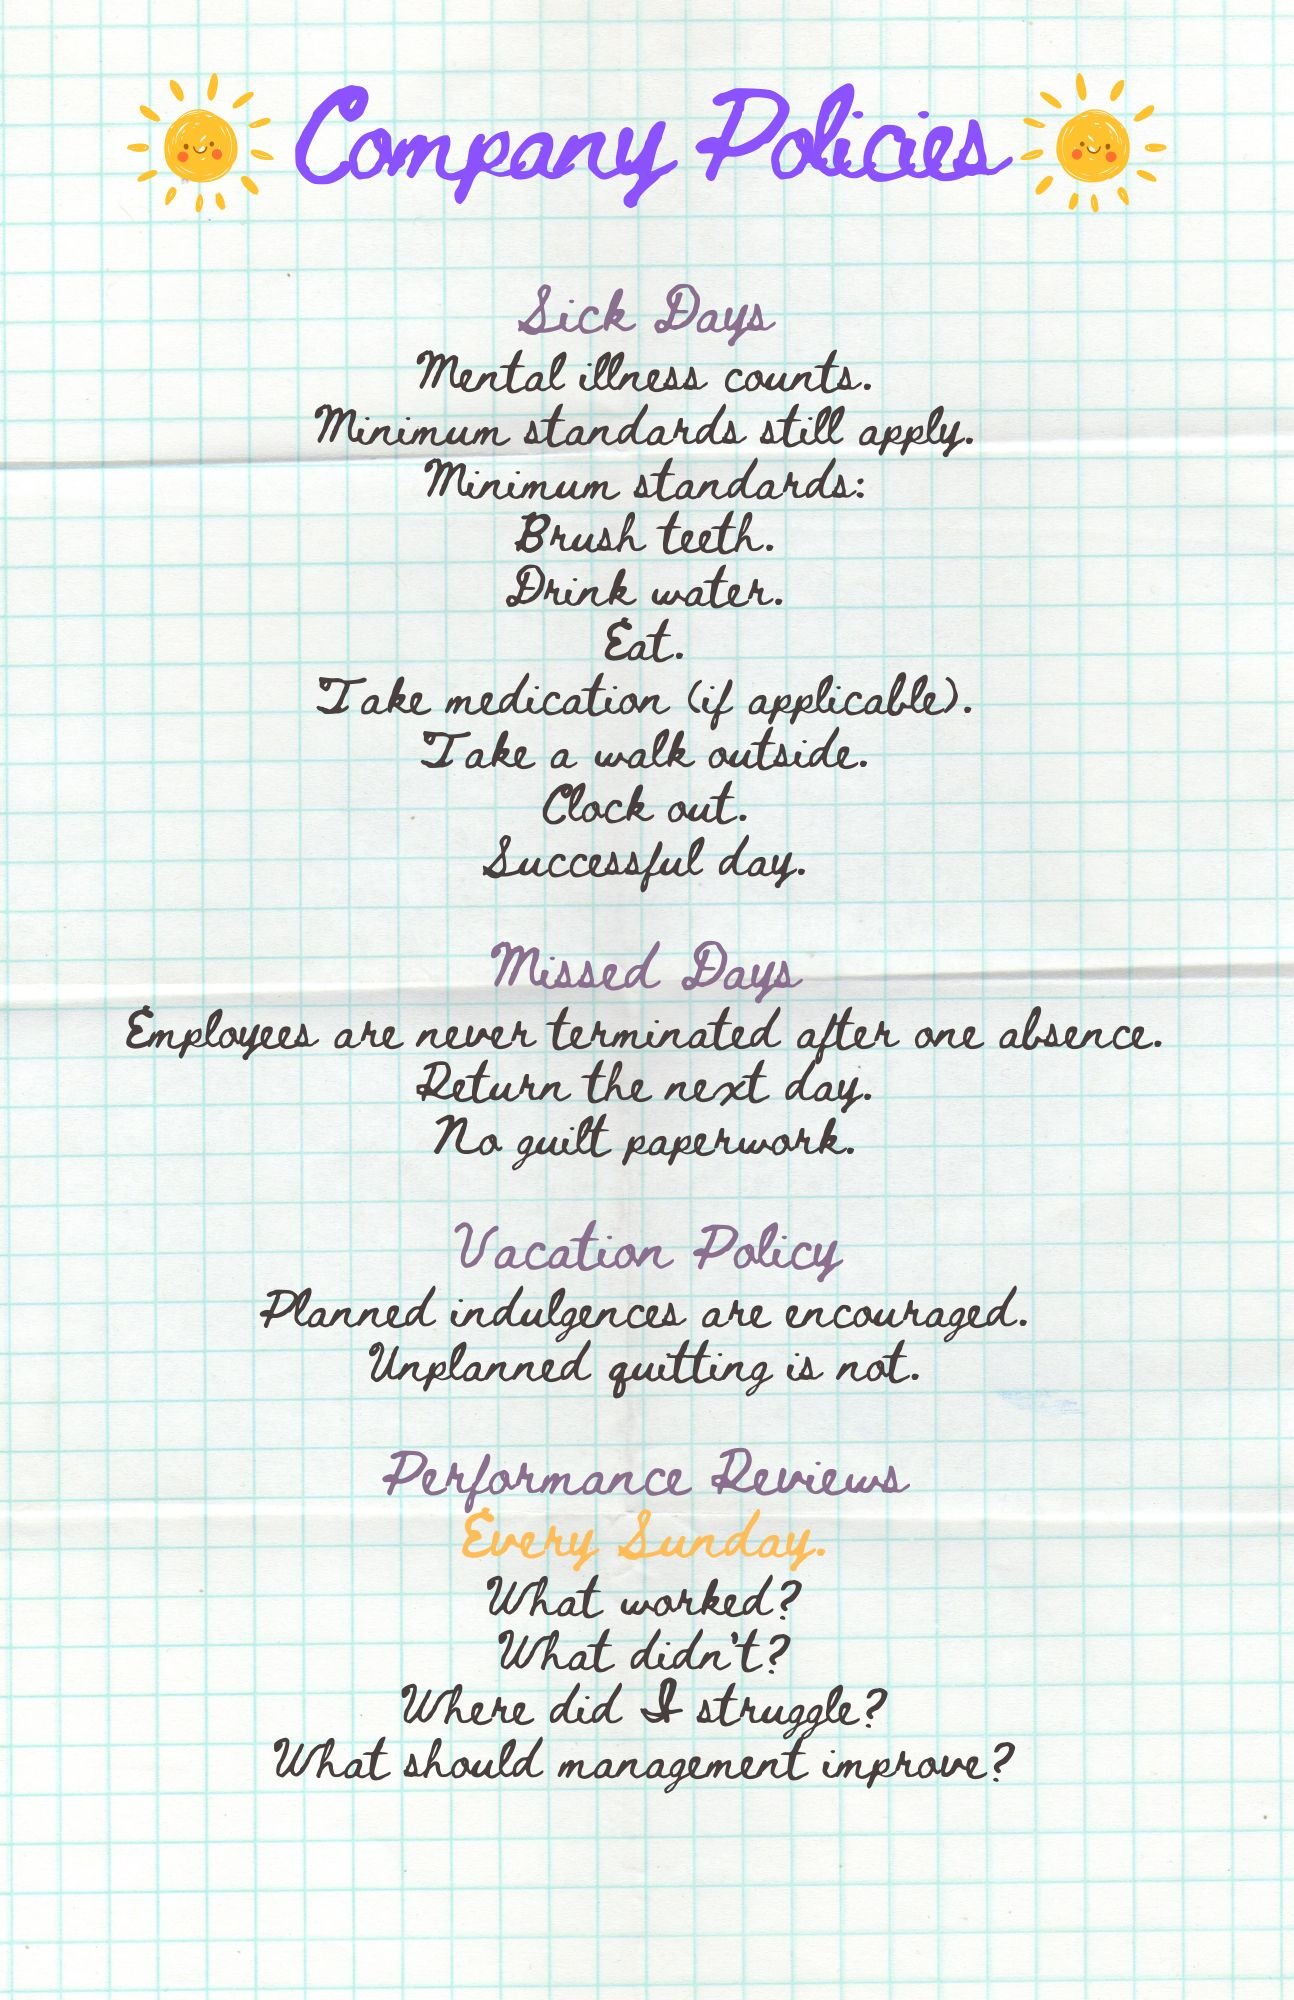 Company Policies
Sick Days
Mental illness counts.
Minimum standards still apply.
Minimum standards:
Brush teeth.
Drink water.
Eat.
Take medication (if applicable).
Take a walk outside.
Clock out.
Successful day.
Missed Days
Employees are never terminated after one absence.
Return the next day.
No guilt paperwork.
Vacation Policy
Planned indulgences are encouraged.
Unplanned quitting is not.
Performance Reviews
Every Sunday.
What worked?
What didn't?
Where did I struggle?
What should management improve?